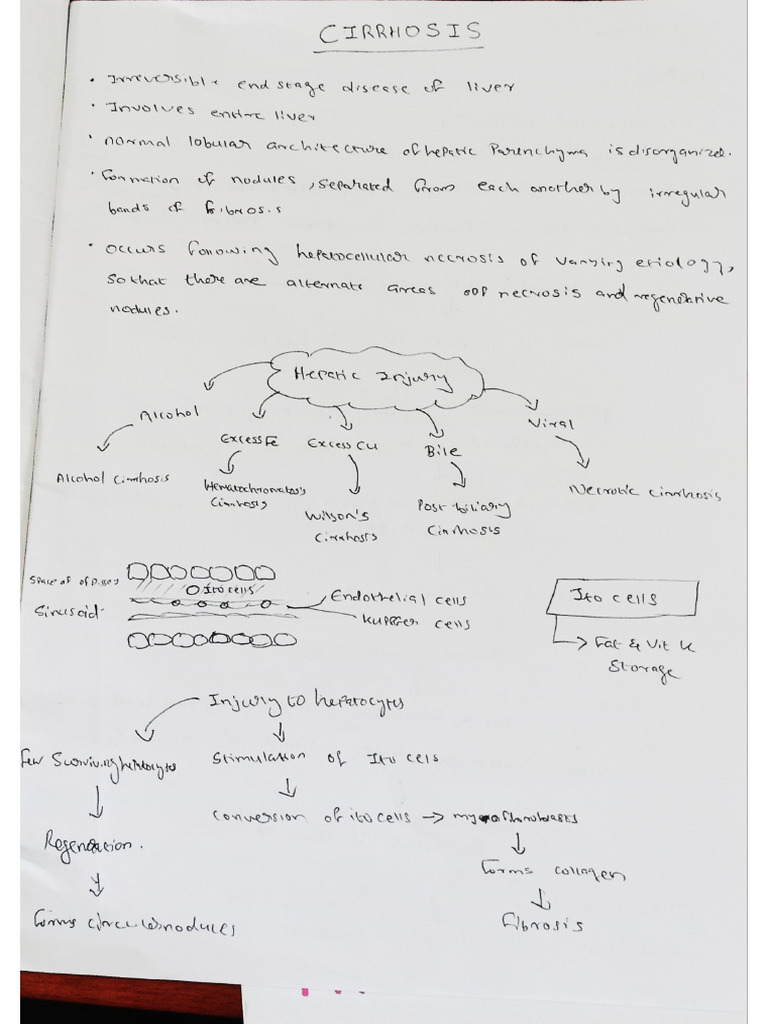 CIRRHOSIS
• Irreversible end stage disease of liver
• Involves entire liver
• normal lobular architecture of hepatic Parenchyma is disorganized.
• Formation of nodules, separated from each another by irregular
bands of fibrosis
• occurs following hepatocellular necrosis of varying etiology,
so that there are alternate areas of necrosis and regenerative
nodules.
Hepatic Injury
Alcohol
Excess Fe
Excess Cu
Bile
Viral
Alcohol Cirrhosis
Cirrhosis
Wilson's
Cirrhosis
Post-biliary
Cirrhosis
Necrotic cirrhosis
Space of
Ito cells
Sinusoid
Endothelial cells
Kupffer cells
Ito cells
Fat & Vit
Storage
Injury to hepatocytes
Few Surviving hepatocytes
Stimulation of Ito cells
Conversion of ito cells → myofibroblasts
Regeneration.
Forms collagen
Forms nodules
Fibrosis